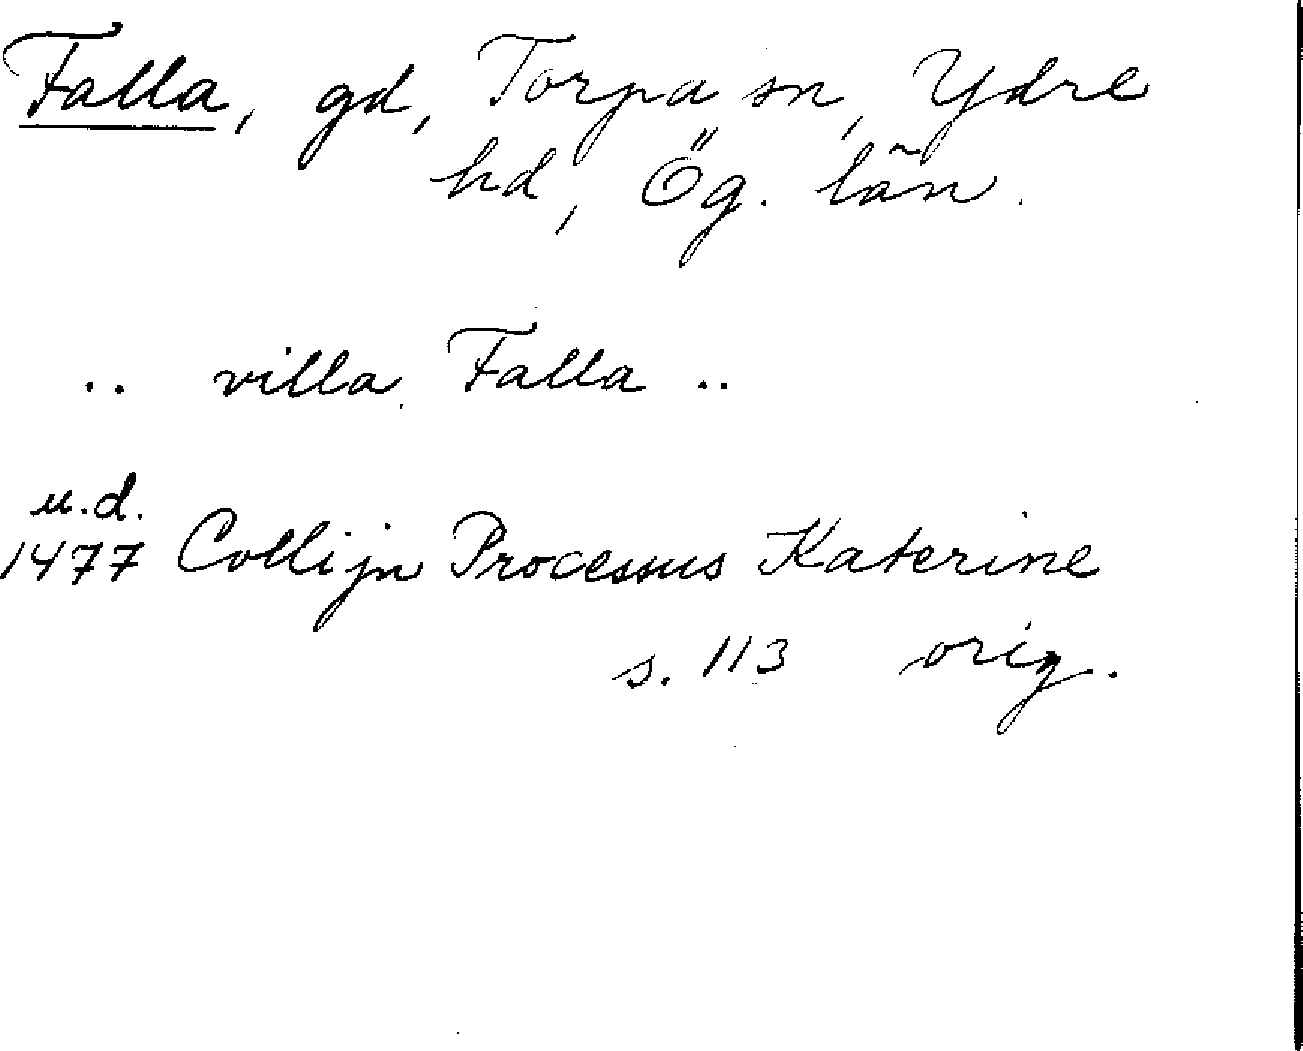 Falla, gd, Torpa sn, Ydre
hd, Ög. län.
.. villa Falla ..
u.d.
1477 Collijn Processus Katerine
s. 113 orig.